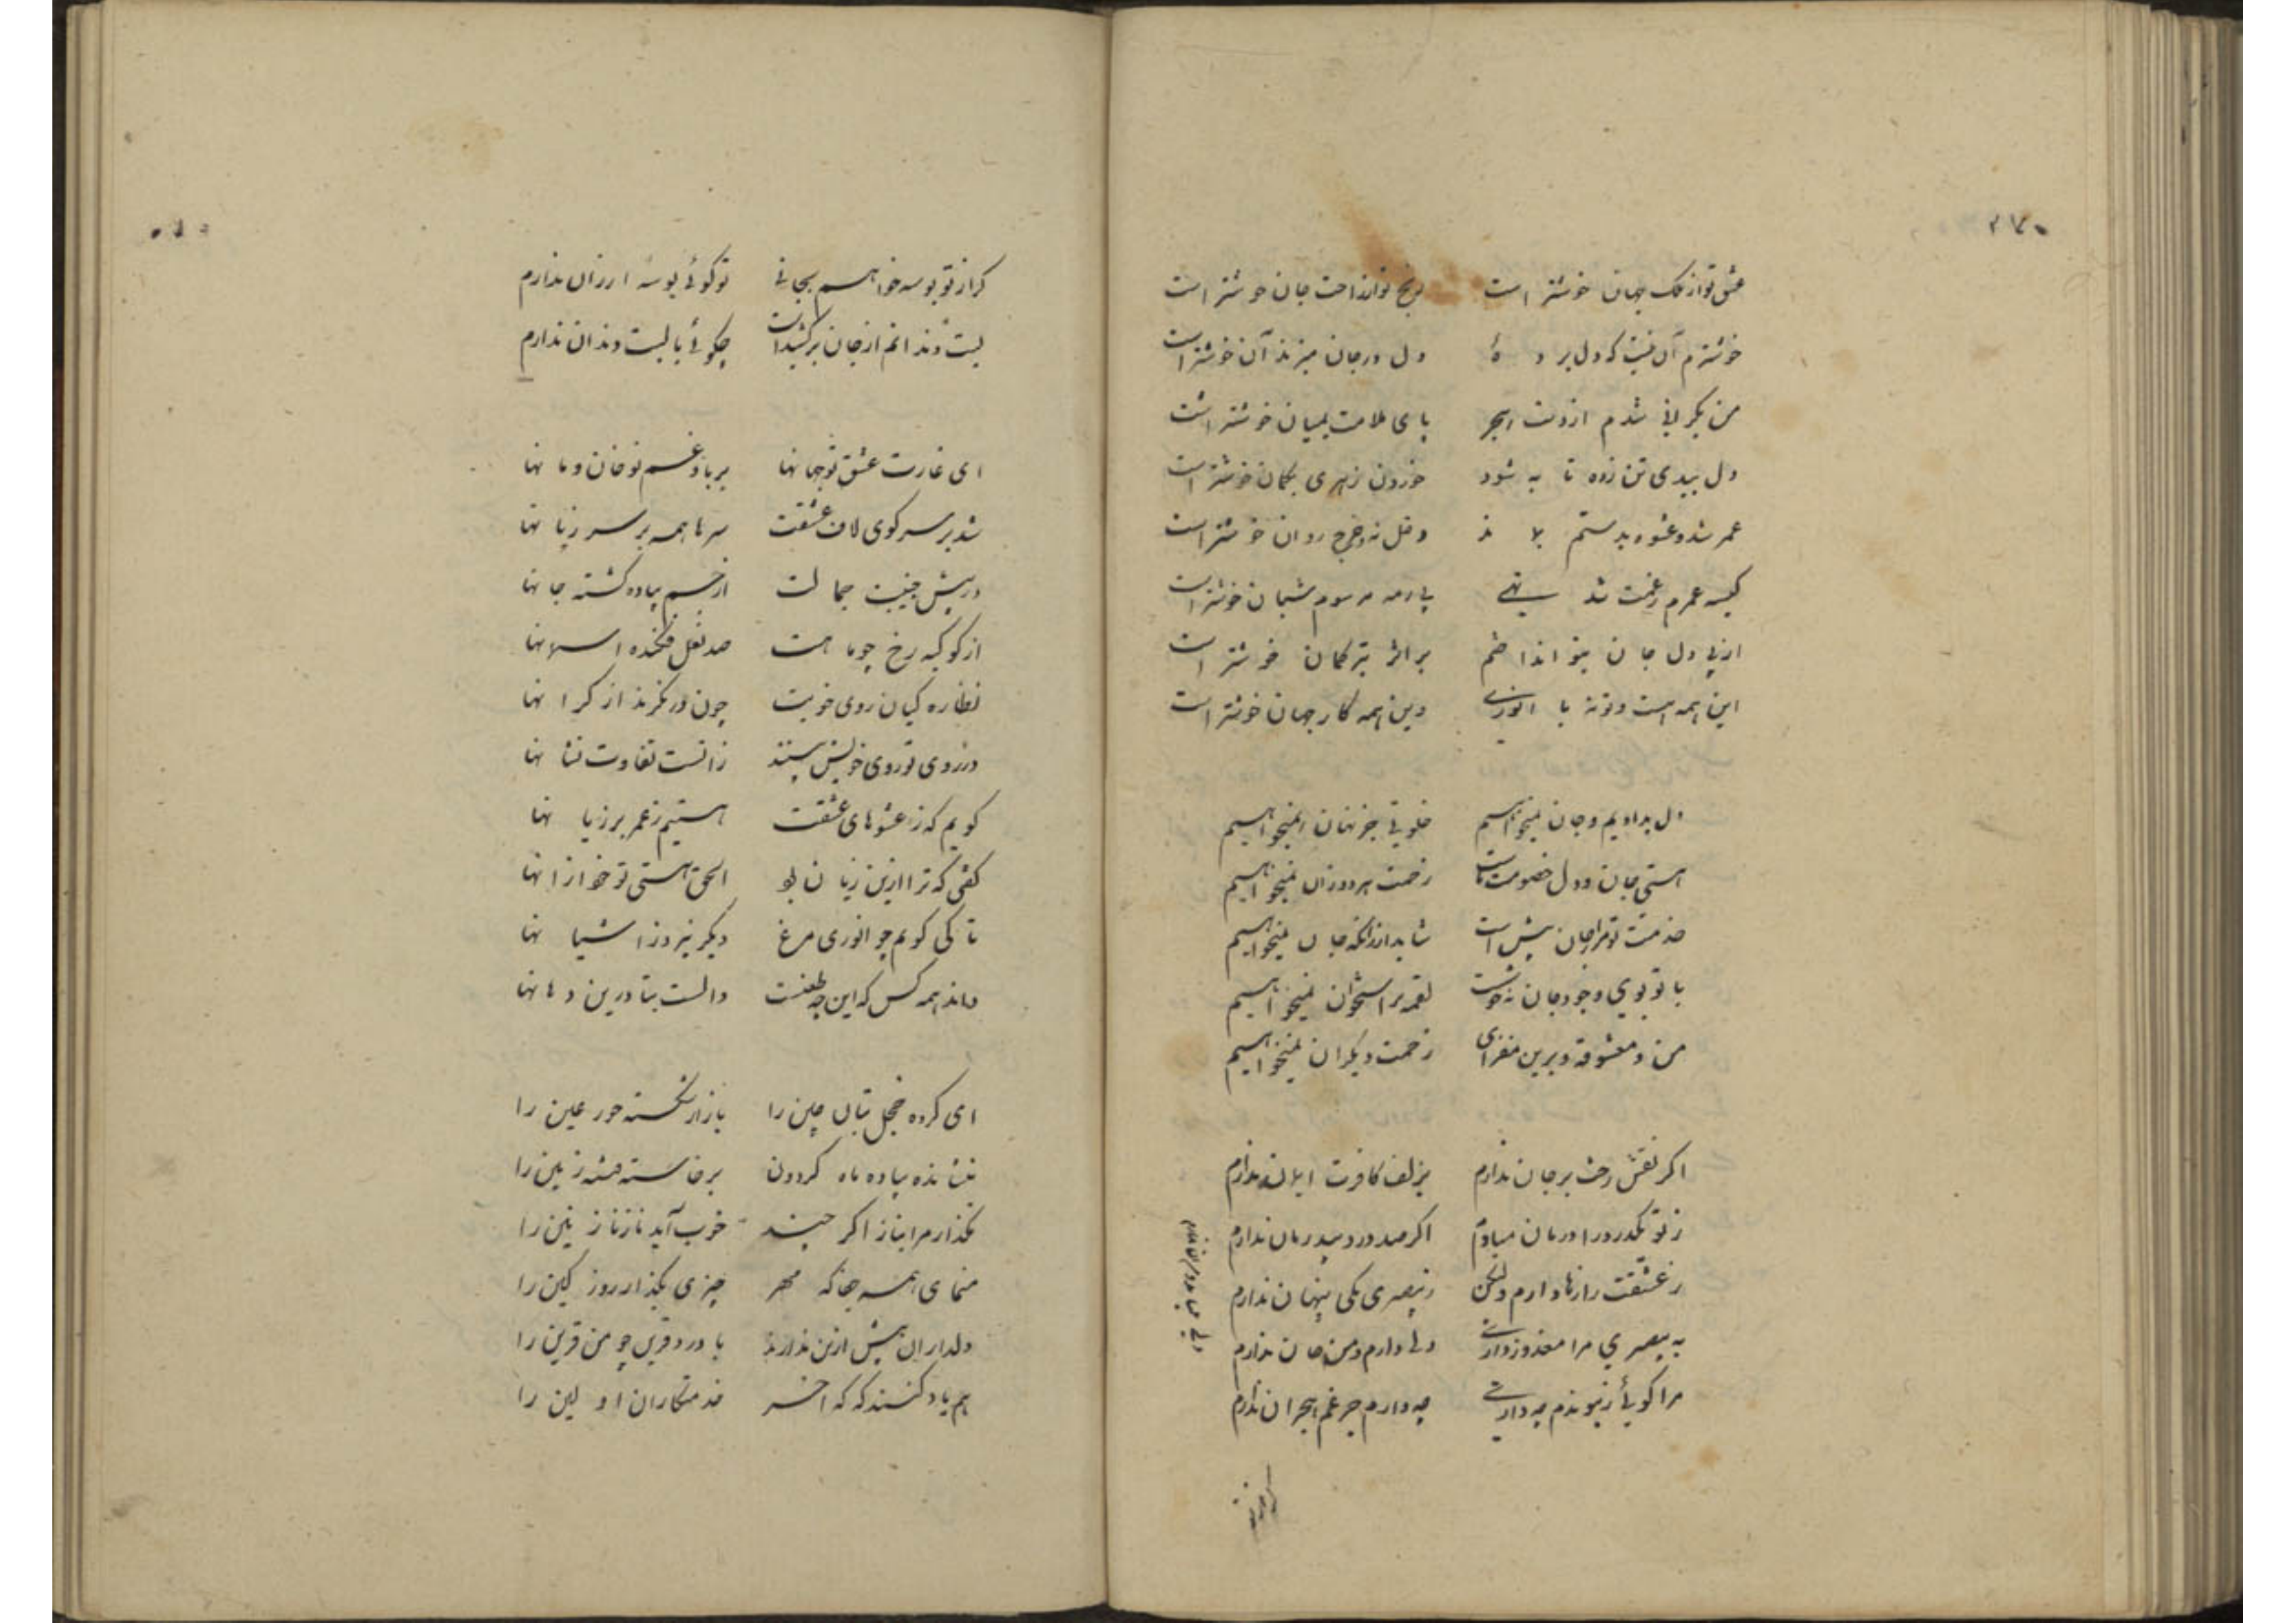 ۲۷۰
عشق تو از ملک جهان خوشتر است رنج تو از راحت جان خوشتر است
خوشترم آن نیست که دل برده دل در جان میزند آن خوشتر است
من بکرانی شدم از دست هجر پای ملامت بمیان خوشتر است
دل ببدی تن زده تا به شود خوردن زهری بکمان خوشتر است
عمر شد و عشوه بدستم بماند دخل نه و خرج روان خوشتر است
کیسه عمرم ز غمت شد تهی بی رمه مرسوم شبان خوشتر است
از پی دل جان بتو انداختم بر اثر تیر کمان خوشتر است
این همه هست و تو نه با انوری وین همه کار جهان خوشتر است
دل بدادیم و جان نمیخواهیم خلوتی جز نهان نمیخواهیم
هستی جان و دل خصومت ماست زحمت هر دوزان نمیخواهیم
خدمت تو مرا ز جان بیش است شاید ار زانکه جان نمیخواهیم
با تو بویی وجود جان نه خوشست لقمه بر استخوان نمیخواهیم
من و معشوقه و برین مفزای زحمت دیگران نمیخواهیم
اگر نقش رخت بر جان ندارم بزلف کافرت ایمان ندارم
ز تو یکدرد را درمان مبادم اگر صد درد بیدرمان ندارم
ز عشقت رازها دارم ولیکن ز بیصبری یکی پنهان ندارم
به بیصبری مرا معذور داری ولی دارم و من جان ندارم
مرا کویی ز پیوندم چه داری چه دارم جز غم هجران ندارم
کر از تو بوسه خواهم بجانی تو کوئی بوسه ارزان ندارم
لبت دندانم از جان برکشیداست چکوئی با لبت دندان ندارم
ای غارت عشق تو جهانها بر باد غم تو خان و مانها
شد بر سر کوی لاف عشقت سرها همه بر سر زبانها
در پیش جنیبت جمالت از جسم پیاده کشته جانها
از کوکبه رخ چو ماهت صد نعل فکنده آسمانها
نظاره کیان روی خوبت چون درنکرند از کرانها
در روی تو روی خویش بینند زانست تفاوت نشانها
کویم که ز عشوهای عشقت هستیم ز عمر بر زیانها
کفتی که ترا ازین زیان بود الحق هستی تو خود ازانها
تا کی کویم چو انوری مرغ دیکر نپرد ز آشیانها
داند همه کس که این چه طعنست دالست بتا درین دهانها
ای کرده خجل بتان چین را بازار شکسته حور عین را
بنشانده پیاده ماه کردون برخاسته فتنه زمین را
مکذار مرا بناز اکر چند خوب آید ناز نازنین را
منمای همه جفا که مهر چیزی بکذار روز کین را
دلداران بیش ازین ندارند با درد قرین چو من قرین را
هم یاد کنند که که آخر خدمتکاران اولین را